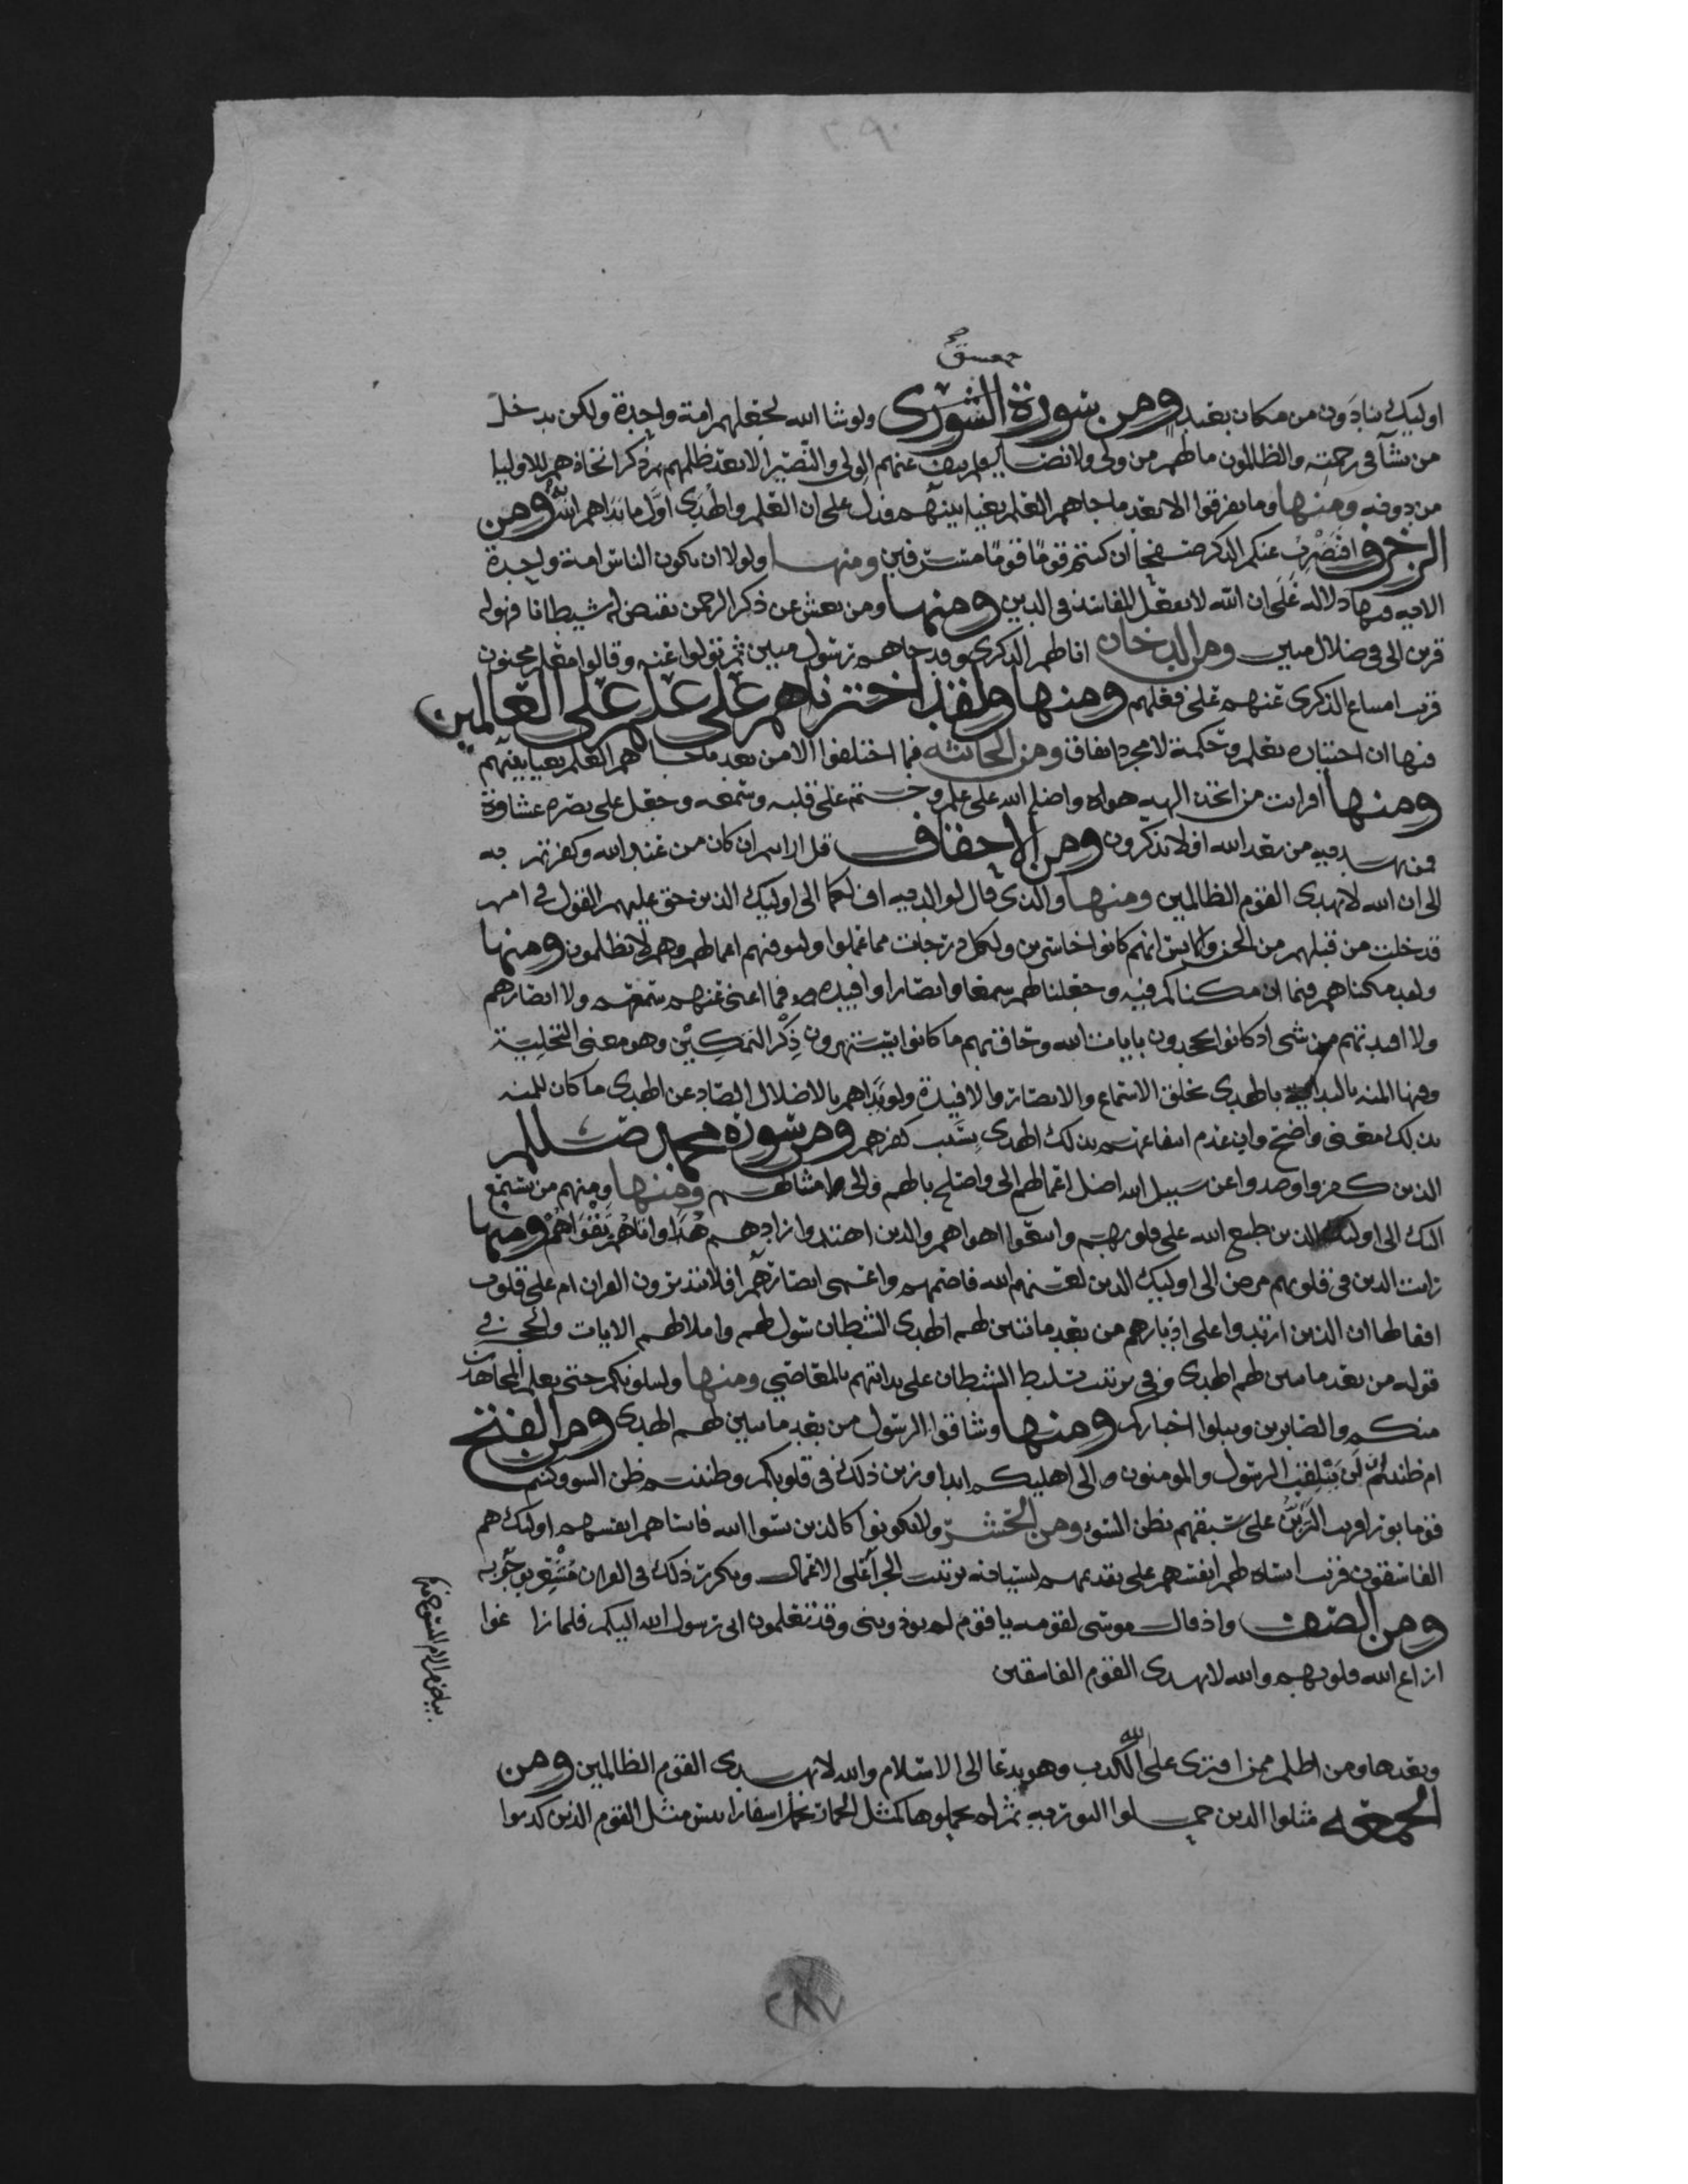 حمعسق
اوليك ينادون من مكان بعيد ومن سورة الشورى ولو شا الله لجعلهم امة واحدة ولكن يدخل
من يشآ في رحمته والظالمون ما لهم من ولي ولا نصير فلم ينف عنهم الولي والنصير الا بعد ظلمهم ثم ذكر اتخاذهم للاوليا
من دونه ومنها وما تفرقوا الا من بعد ما جاهم العلم بغيا بينهم فدل على ان العلم والهدى اول ما بداهم الله به ومن
الزخرف افنضرب عنكم الذكر صفحا ان كنتم قوما مسرفين ومنها ولولا ان يكون الناس امة واحدة
الايه فيها دلاله على ان الله لا يفعل المفاسد في الدين ومنها ومن يعش عن ذكر الرحمن نقيض له شيطانا فهو له
قرين الى في ضلال مبين ومن الدخان انا لهم الذكرى وقد جاهم رسول مبين ثم تولوا عنه وقالوا معلم مجنون
فرتب امتناع الذكرى عنهم على فعلهم ومنها ولقد اخترناهم على علم على العالمين
فيها ان اختياره بعلم وحكمة لا مجرد اتفاق ومن الجاثيه فما اختلفوا الا من بعد ما جاهم العلم بغيا بينهم
ومنها افرايت من اتخذ الهه هواه واضله الله على علم وختم على قلبه وسمعه وجعل على بصره غشاوة
فمن يهديه من بعد الله افلا تذكرون ومن الاحقاف قل ارايتم ان كان من عند الله وكفرتم به
الى ان الله لا يهدى القوم الظالمين ومنها والذى قال لوالديه اف لكما الى اوليك الذين حق عليهم القول في امم
قد خلت من قبلهم من الجن والانس انهم كانوا خاسرين ولكل درجات مما عملوا وليوفيهم اعمالهم وهم لا يظلمون ومنها
ولقد مكناهم فيما ان مكناكم فيه وجعلنا لهم سمعا وابصارا وافيده فما اغنى عنهم سمعهم ولا ابصارهم
ولا افيدتهم من شى اذ كانوا يجحدون بايات الله وحاق بهم ما كانوا به يستهزون ذكر التمكين وهو معنى التخلية
وفيها المنه بالهدى بخلق الاسماع والابصار والافيدة ولو بداهم بالاضلال الصاد عن الهدى ما كان للمنه
بذلك معنى واضح وابن عدم انتفاعهم بذلك الهدى بسبب كفرهم ومن سورة محمد صلى
الذين كفروا وصدوا عن سبيل الله اضل اعمالهم الى واصلح بالهم والى امثالهم ومنها ومنهم من يستمع
اليك الى اوليك الذين طبع الله على قلوبهم واتبعوا اهواهم والذين اهتدوا زادهم هدًا واتاهم تقواهم ومنها
رايت الذين في قلوبهم مرض الى اوليك الذين لعنهم الله فاصمهم واعمى ابصارهم افلا يتدبرون القران ام على قلوب
اقفالها ان الذين ارتدوا على ادبارهم من بعد ما تبين لهم الهدى الشيطان سول لهم واملا لهم الايات والحجة في
قوله من بعد ما تبين لهم الهدى وفي ترتيب تسليط الشيطان على بدايتهم بالمعاصي ومنها ولنبلونكم حتى نعلم المجاهدين
منكم والصابرين ونبلوا اخباركم ومنها وشاقوا الرسول من بعد ما تبين لهم الهدى ومن الفتح
ام ظننتم ان لن ينقلب الرسول والمومنون الى اهليهم ابدا وزين ذلك في قلوبكم وظننتم ظن السو وكنتم
قوما بورا فرتب التزيين على سبقهم بظن السوء ومن الحشر ولا تكونوا كالذين نسوا الله فانساهم انفسهم اوليك هم
الفاسقون فرتب انساه لهم انفسهم على تقدمهم لنسيانه ترتيب الجزآ على الاعمال وتكرر ذلك في القران مشعر بوجوبه
ومن الصف واذ قال موسى لقومه يا قوم لم توذونني وقد تعلمون اني رسول الله اليكم فلما زاغوا
ازاغ الله قلوبهم والله لا يهدى القوم الفاسقين
وبعدها ومن اظلم ممن افترى على الله الكذب وهو يدعا الى الاسلام والله لا يهدى القوم الظالمين ومن
الجمعة مثلوا الذين حملوا التوريه ثم لم يحملوها كمثل الحمار يحمل اسفارا بيس مثل القوم الذين كذبوا
٢٨٧